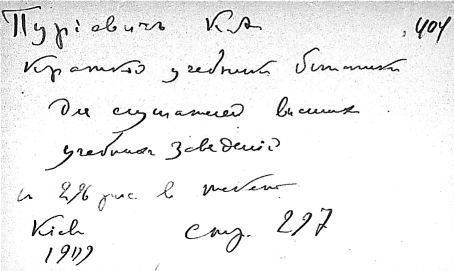 Пуріевичъ К.А ,404
Краткій учебникъ ботаники
для слушателей высших
учебных заведеній
с 296 рис. в тексте
Kieв стр. 297